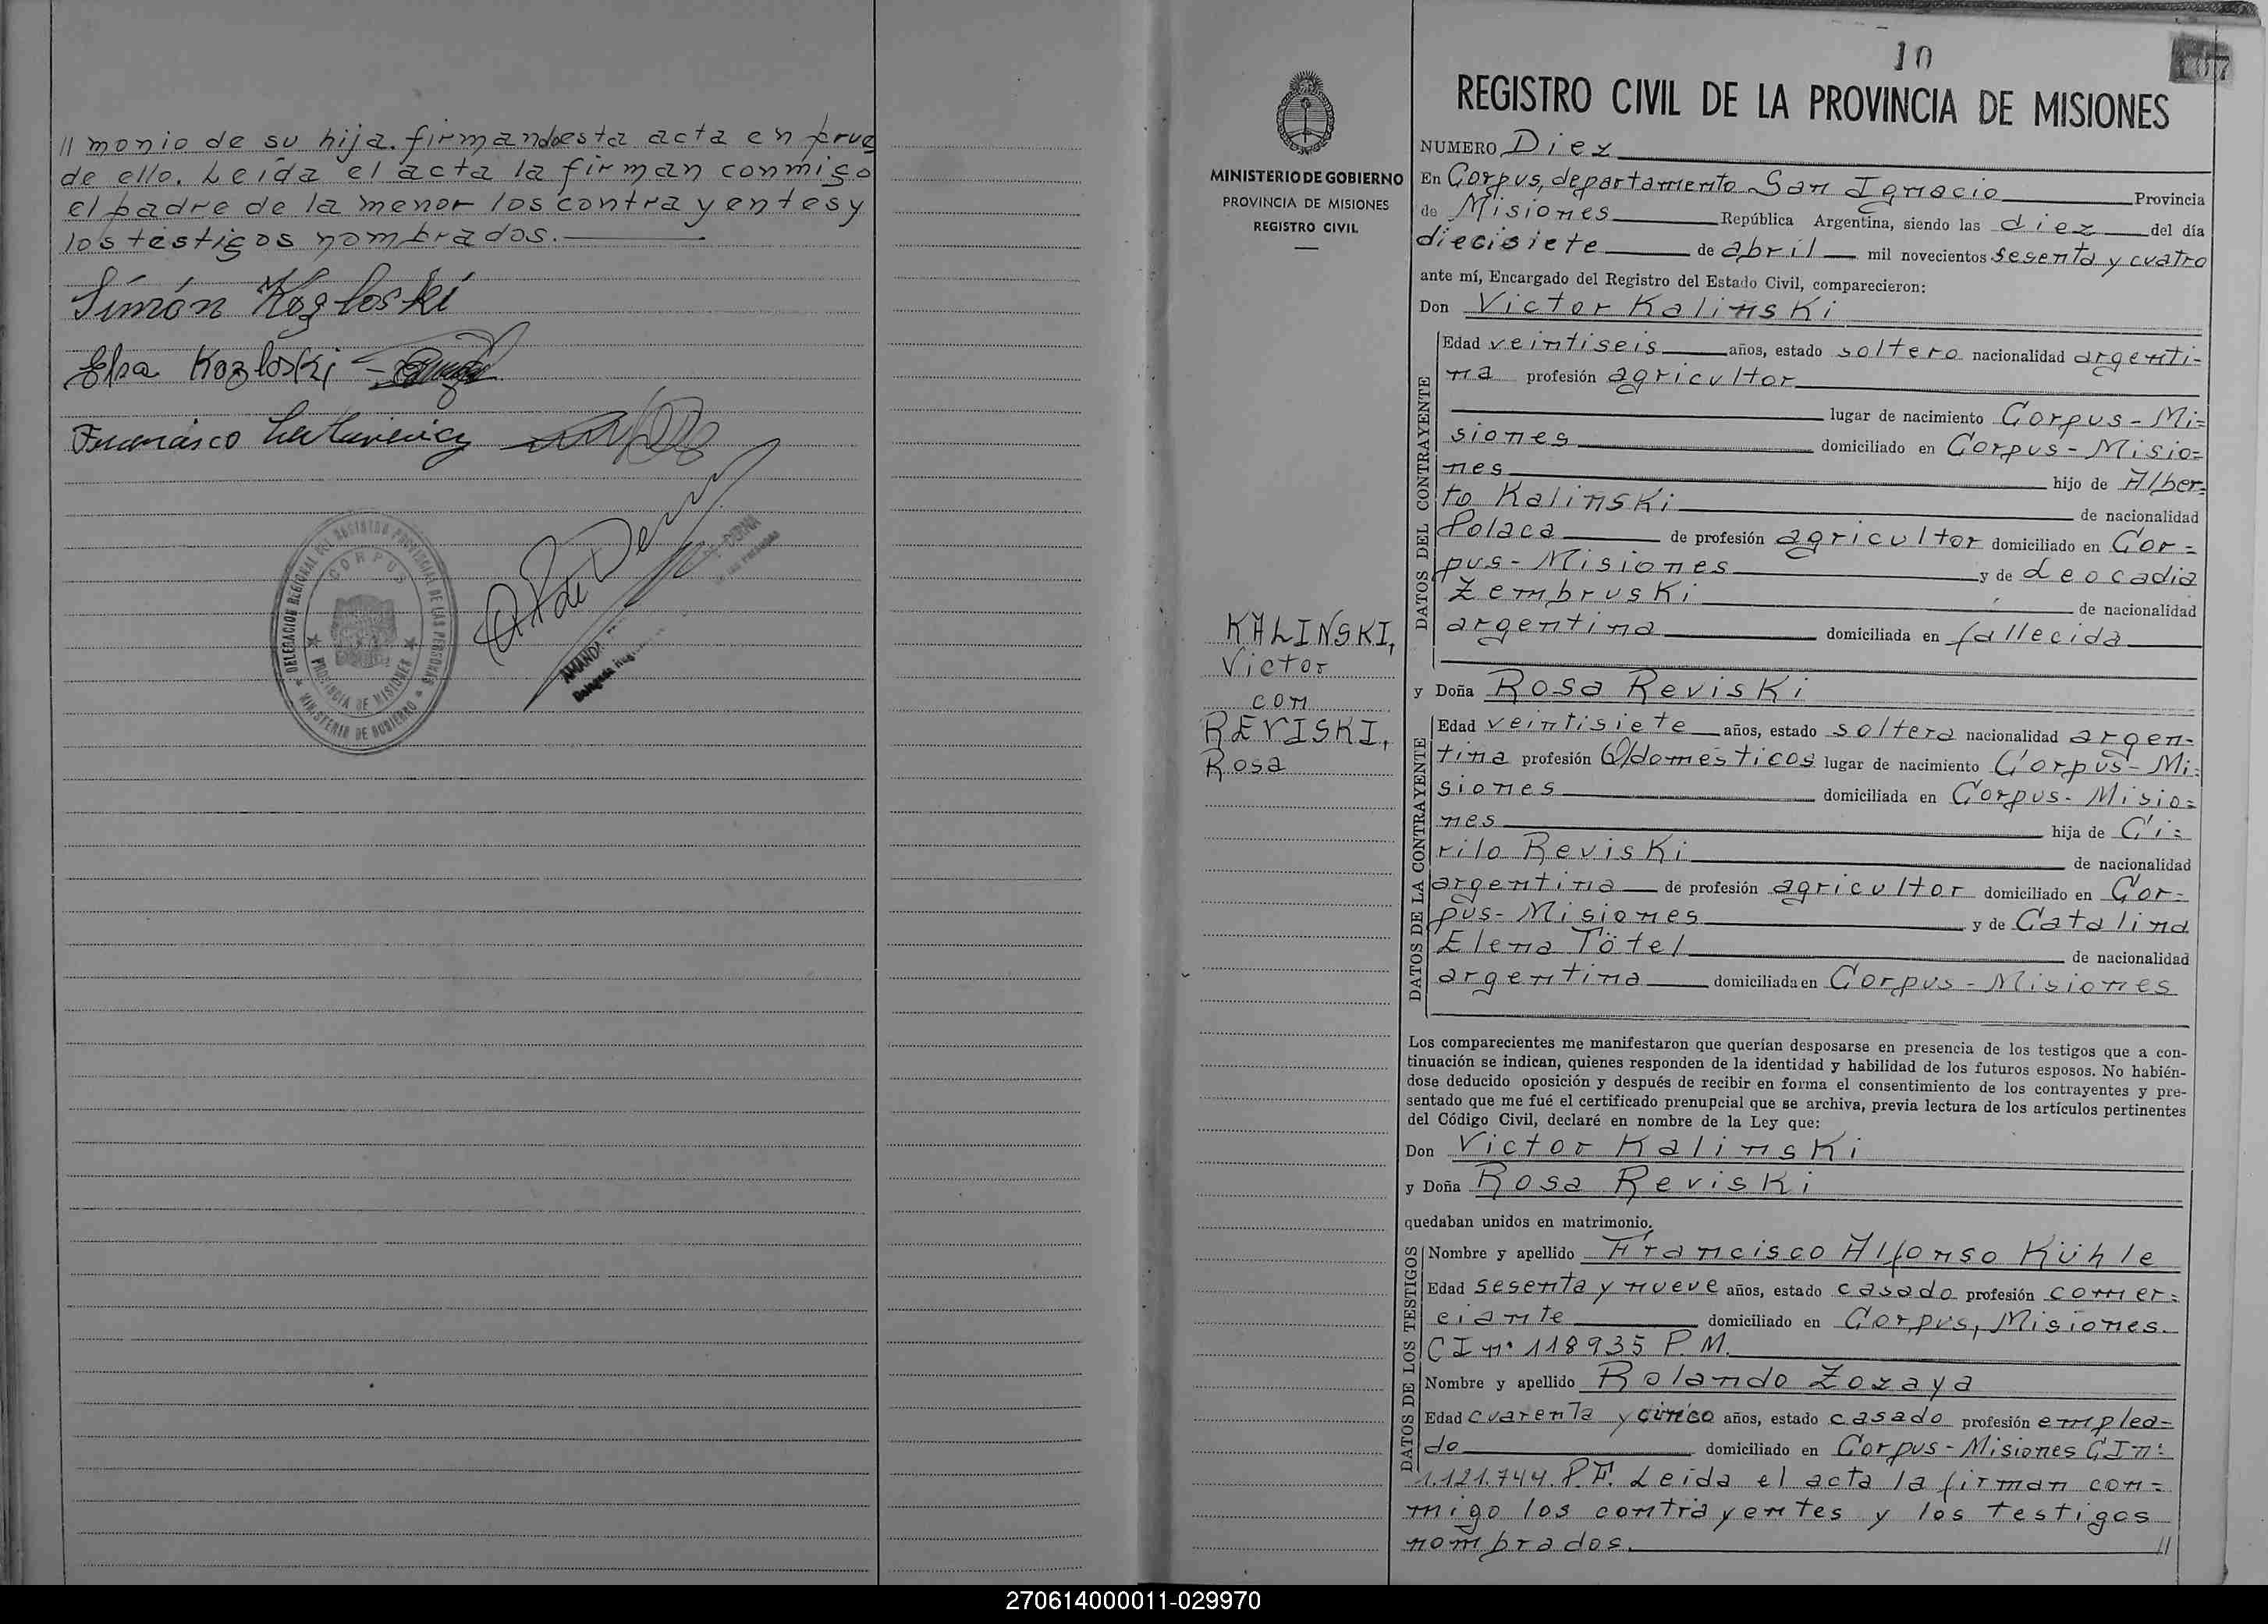 // monio de su hija. firmando esta acta en prue
de ello. Leída el acta la firman conmigo
el padre de la menor los contrayentes y
los testigos nombrados.
Simón Kozloski
Elsa Kozloski
Francisco
DELEGACION REGIONAL DEL REGISTRO PROVINCIAL DE LAS PERSONAS
CORPUS
PROVINCIA DE MISIONES
MINISTERIO DE GOBIERNO
AMANDA
10
107
REGISTRO CIVIL DE LA PROVINCIA DE MISIONES
MINISTERIO DE GOBIERNO
PROVINCIA DE MISIONES
REGISTRO CIVIL
KALINSKI,
Victor
con
REVISKI,
Rosa
NUMERO Diez
En Corpus, departamento San Ignacio Provincia
de Misiones República Argentina, siendo las diez del día
diecisiete de abril mil novecientos sesenta y cuatro
ante mí, Encargado del Registro del Estado Civil, comparecieron:
Don Victor Kalinski
DATOS DEL CONTRAYENTE
Edad veintiseis años, estado soltero nacionalidad argenti=
na profesión agricultor
lugar de nacimiento Corpus - Mi=
siones domiciliado en Corpus - Misio=
nes hijo de Alber=
to Kalinski de nacionalidad
Polaca de profesión agricultor domiciliado en Cor=
pus - Misiones y de Leocadia
Zembruski de nacionalidad
argentina domiciliada en fallecida
y Doña Rosa Reviski
DATOS DE LA CONTRAYENTE
Edad veintisiete años, estado soltera nacionalidad argen-
tina profesión Q/domésticos lugar de nacimiento Corpus - Mi=
siones domiciliada en Corpus - Misio=
nes hija de Ci=
rilo Reviski de nacionalidad
argentina de profesión agricultor domiciliado en Cor=
pus - Misiones y de Catalina
Elena Tötel de nacionalidad
argentina domiciliada en Corpus - Misiones
Los comparecientes me manifestaron que querían desposarse en presencia de los testigos que a con-
tinuación se indican, quienes responden de la identidad y habilidad de los futuros esposos. No habién-
dose deducido oposición y después de recibir en forma el consentimiento de los contrayentes y pre-
sentado que me fué el certificado prenupcial que se archiva, previa lectura de los artículos pertinentes
del Código Civil, declaré en nombre de la Ley que:
Don Victor Kalinski
y Doña Rosa Reviski
quedaban unidos en matrimonio.
DATOS DE LOS TESTIGOS
Nombre y apellido Francisco Alfonso Kühle
Edad sesenta y nueve años, estado casado profesión comer=
ciante domiciliado en Corpus, Misiones.
CI nº 118935 P. M.
Nombre y apellido Rolando Zozaya
Edad cuarenta y cinco años, estado casado profesión emplea=
do domiciliado en Corpus - Misiones CI nº
1.121.744. P.F. Leída el acta la firman con=
migo los contrayentes y los testigos
nombrados. //
270614000011-029970